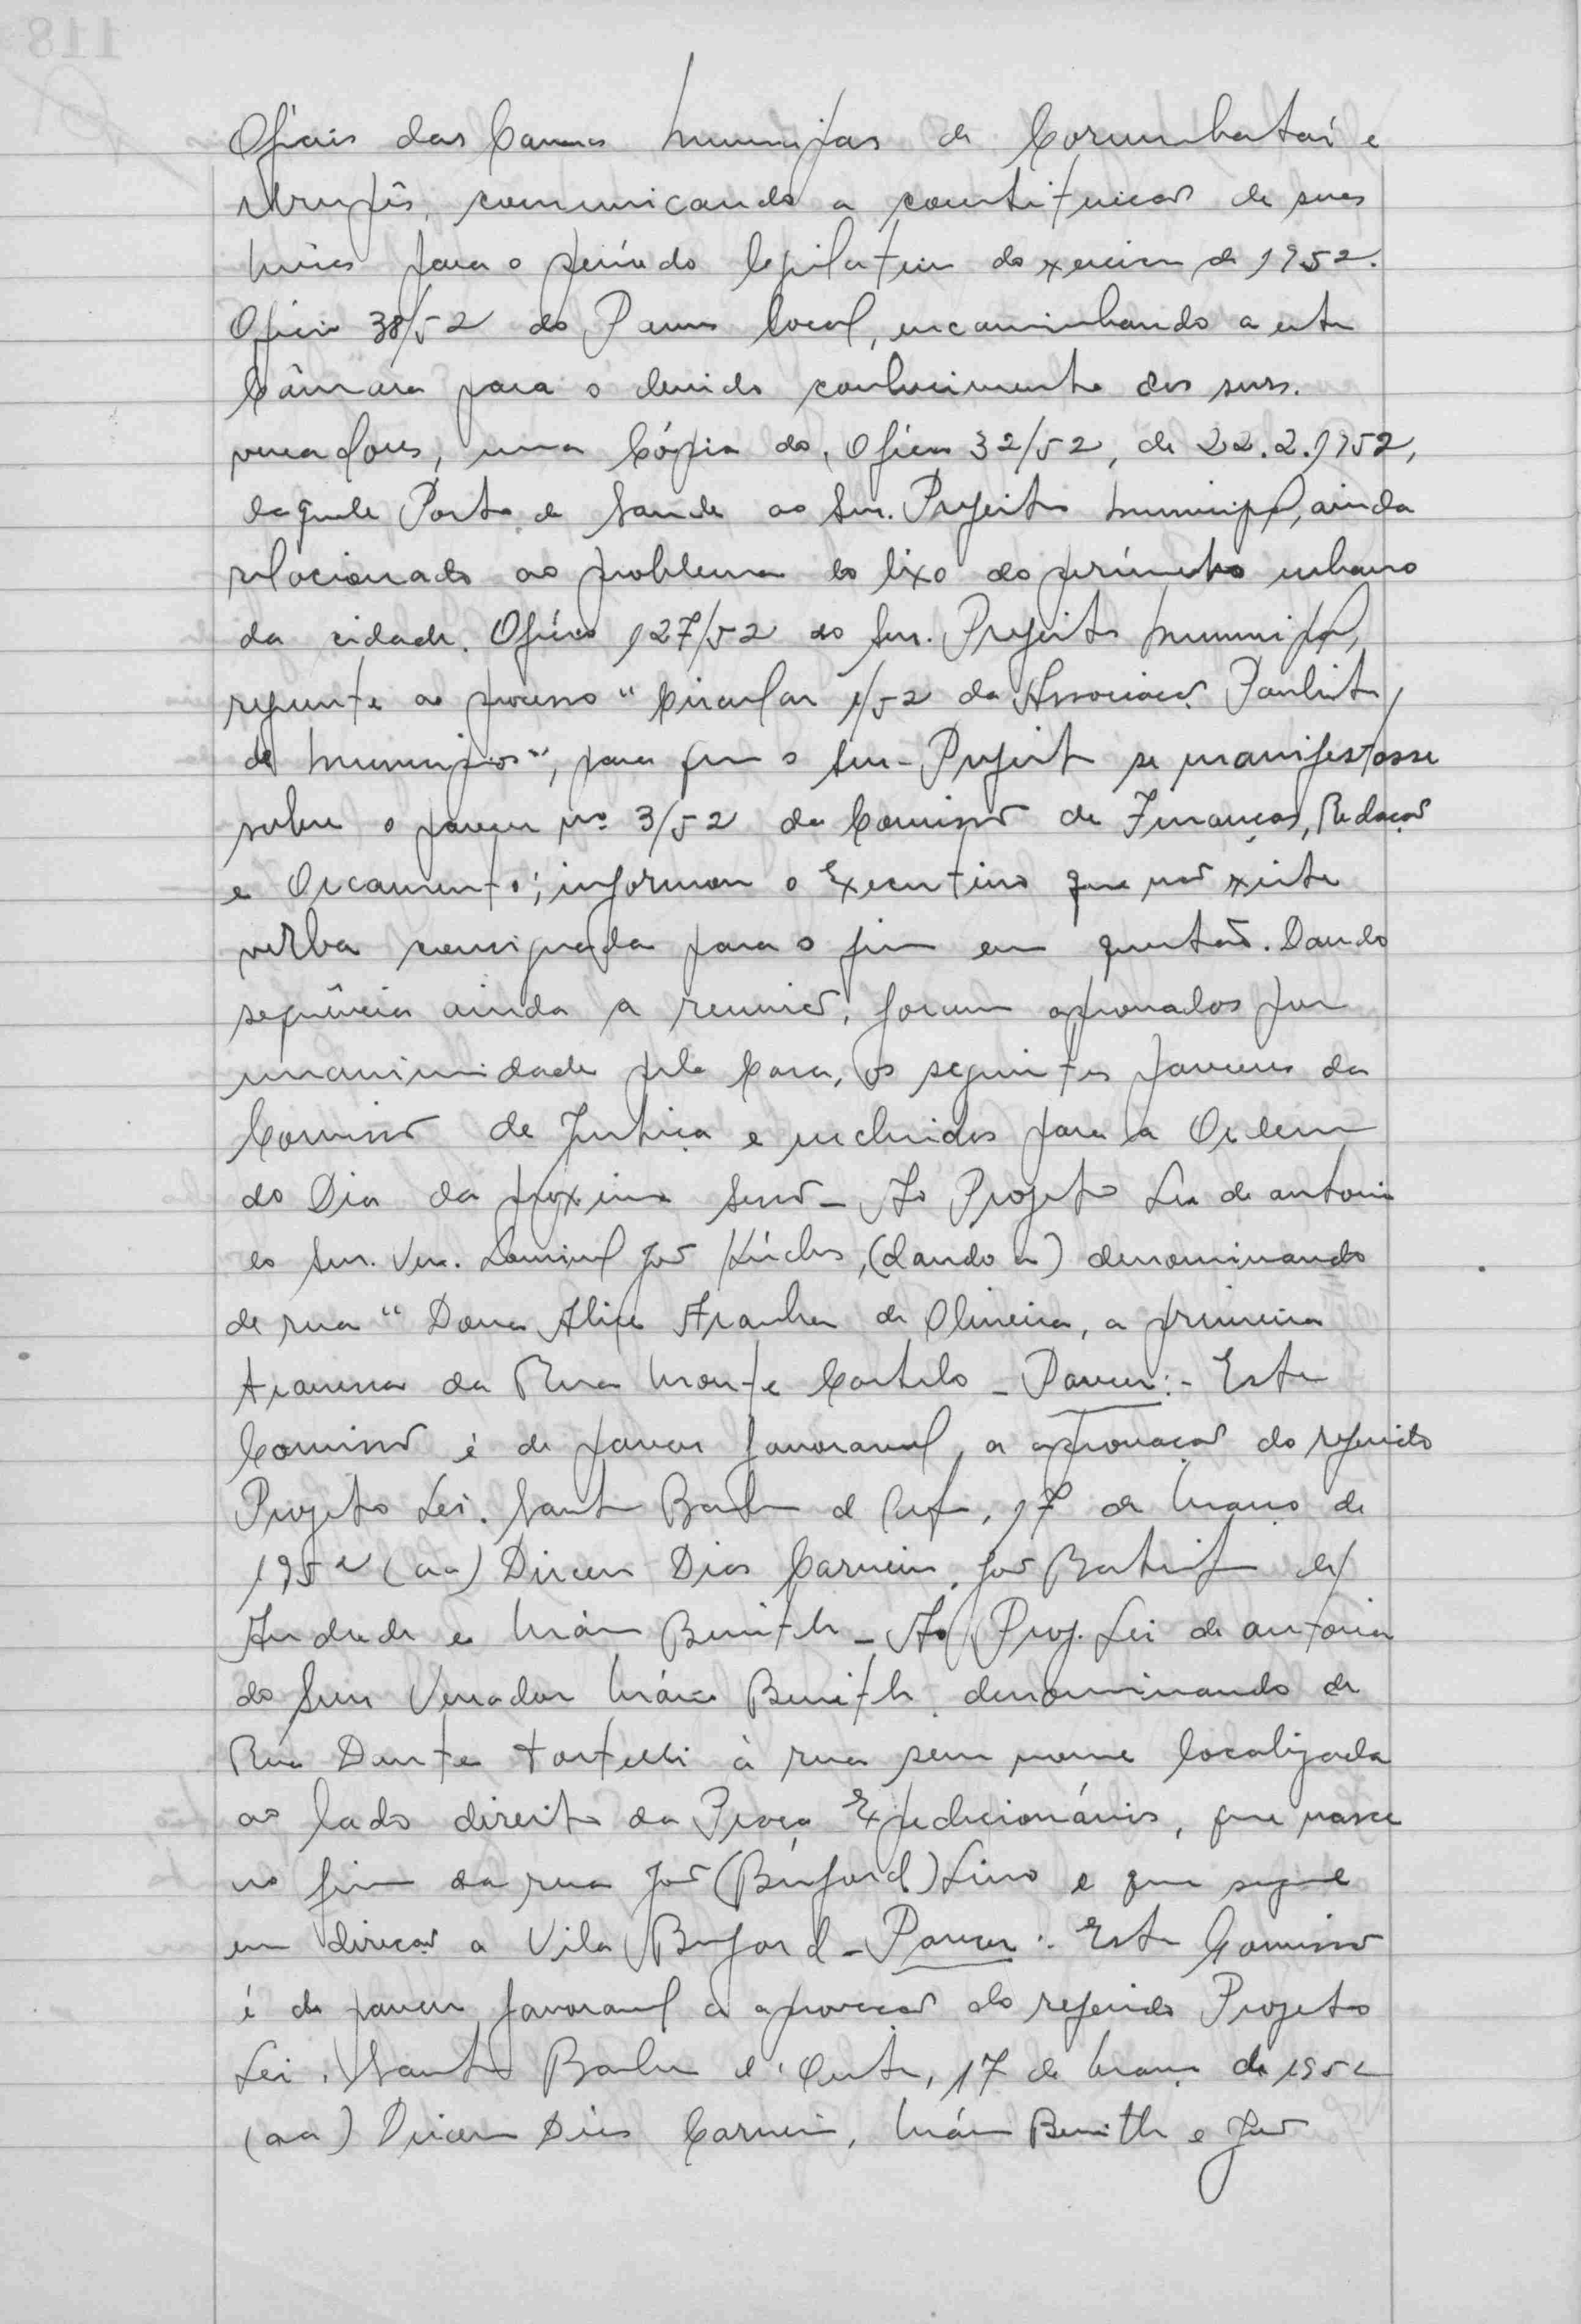 Ofícios das Camaras Municipais de Corumbataí e
Urupês, comunicando a constituição de suas
Mesas para o período legislativo do exercicio de 1952.
Oficio 38/52 do P local, encaminhando a esta
Câmara para o devido conhecimento dos snrs.
vereadores, uma Cópia do Oficio 32/52, de 22.2.1952,
daquele Posto de Saude ao Snr. Prefeito Municipal, ainda
relacionado ao problema do lixo do perímetro urbano
da cidade. Ofício 127/52 do Snr. Prefeito Municipal,
referente ao processo "Circular 1/52 da Associação Paulista
de Municipios", para que o Snr. Prefeito se manifestasse
sobre o parecer nº 3/52 da Comissão de Finanças, Redação
e Orcamento; informou o Executivo que não existe
verba consignada para o fim em questão. Dando
sequência ainda a reunião, foram aprovados por
unanimidade pela Casa, os seguintes pareceres da
Comissão de Justiça e incluidos para a Ordem
do Dia da proxima Sessão - Ao Projeto Lei de autoria
do Snr. Ver. José, (dando a) denominando
de rua "Dona Alice Aranha de Oliveira, a primeira
travessa da Rua Monte Castelo - Parecer:- Esta
Comissão é de parecer favoravel, a aprovação do referido
Projeto Lei. Santa Barbara d'Oeste, 17 de Março de
1952 (aa) Dirceu Dias Carneiro, José Batista de
Andrade e Mário Benith - Ao Proj. Lei de autoria
do Snr Vereador Mário Benith, denominando de
Rua Dante Tortelli à rua sem nome localizada
ao lado direito da Praça Expedicionários, que nasce
no fim da rua José (Buford) Lino e que segue
em direção a Vila Buford - Parecer: Esta Comissão
é de parecer favoravel a aprovação do referido Projeto
Lei. Santa Barbara d'Oeste, 17 de Março de 1952
(aa) Dirceu Dias Carneiro, Mário Benith e José